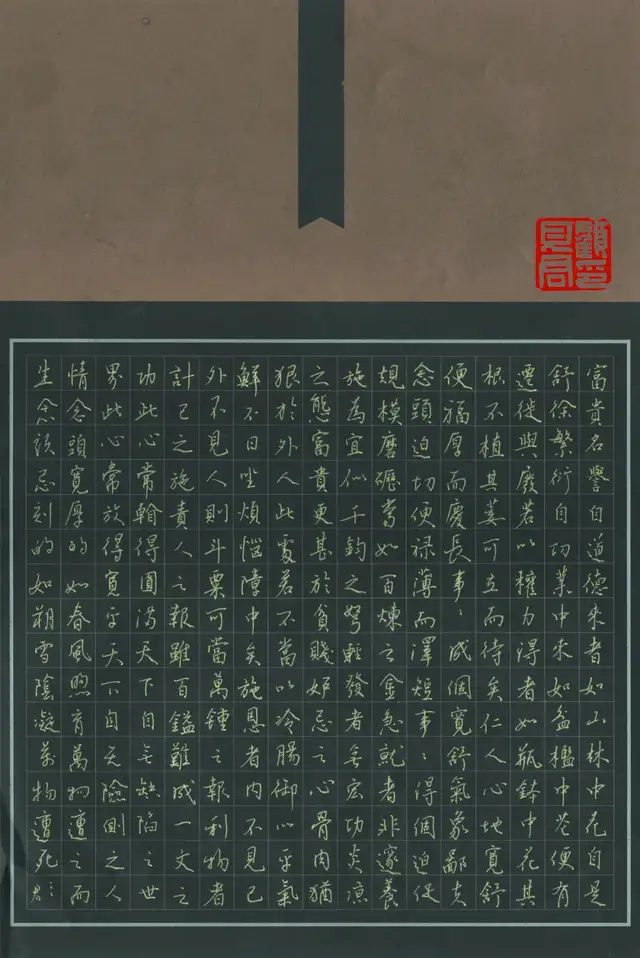 富貴名譽自道德来者如山林中花自是
舒徐繁衍自功業中来如盆檻中花便有
遷徙與廢若以權力得者如瓶鉢中花其
根不植其萎可立而待矣仁人心地寬舒
便福厚而慶長事〻成個寬舒氣象鄙夫
念頭迫切便禄薄而澤短事〻得個迫促
規模磨礪當如百煉之金急就者非邃養
施為宜似千鈞之弩輕發者無宏功炎凉
之態富貴更甚於貧賤妒忌之心骨肉猶
狠於外人此處若不當以冷腸御以平氣
鮮不日坐煩惱障中矣施恩者内不見己
外不見人則斗粟可當萬鍾之報利物者
計己之施責人之報雖百鎰難成一文之
功此心常得圓滿天下自無缺陷之世
界此心常放得寬平天下自无險側之人
情念頭寬厚的如春風煦育萬物遭之而
生念頭忌刻的如朔雪陰凝萬物遭死